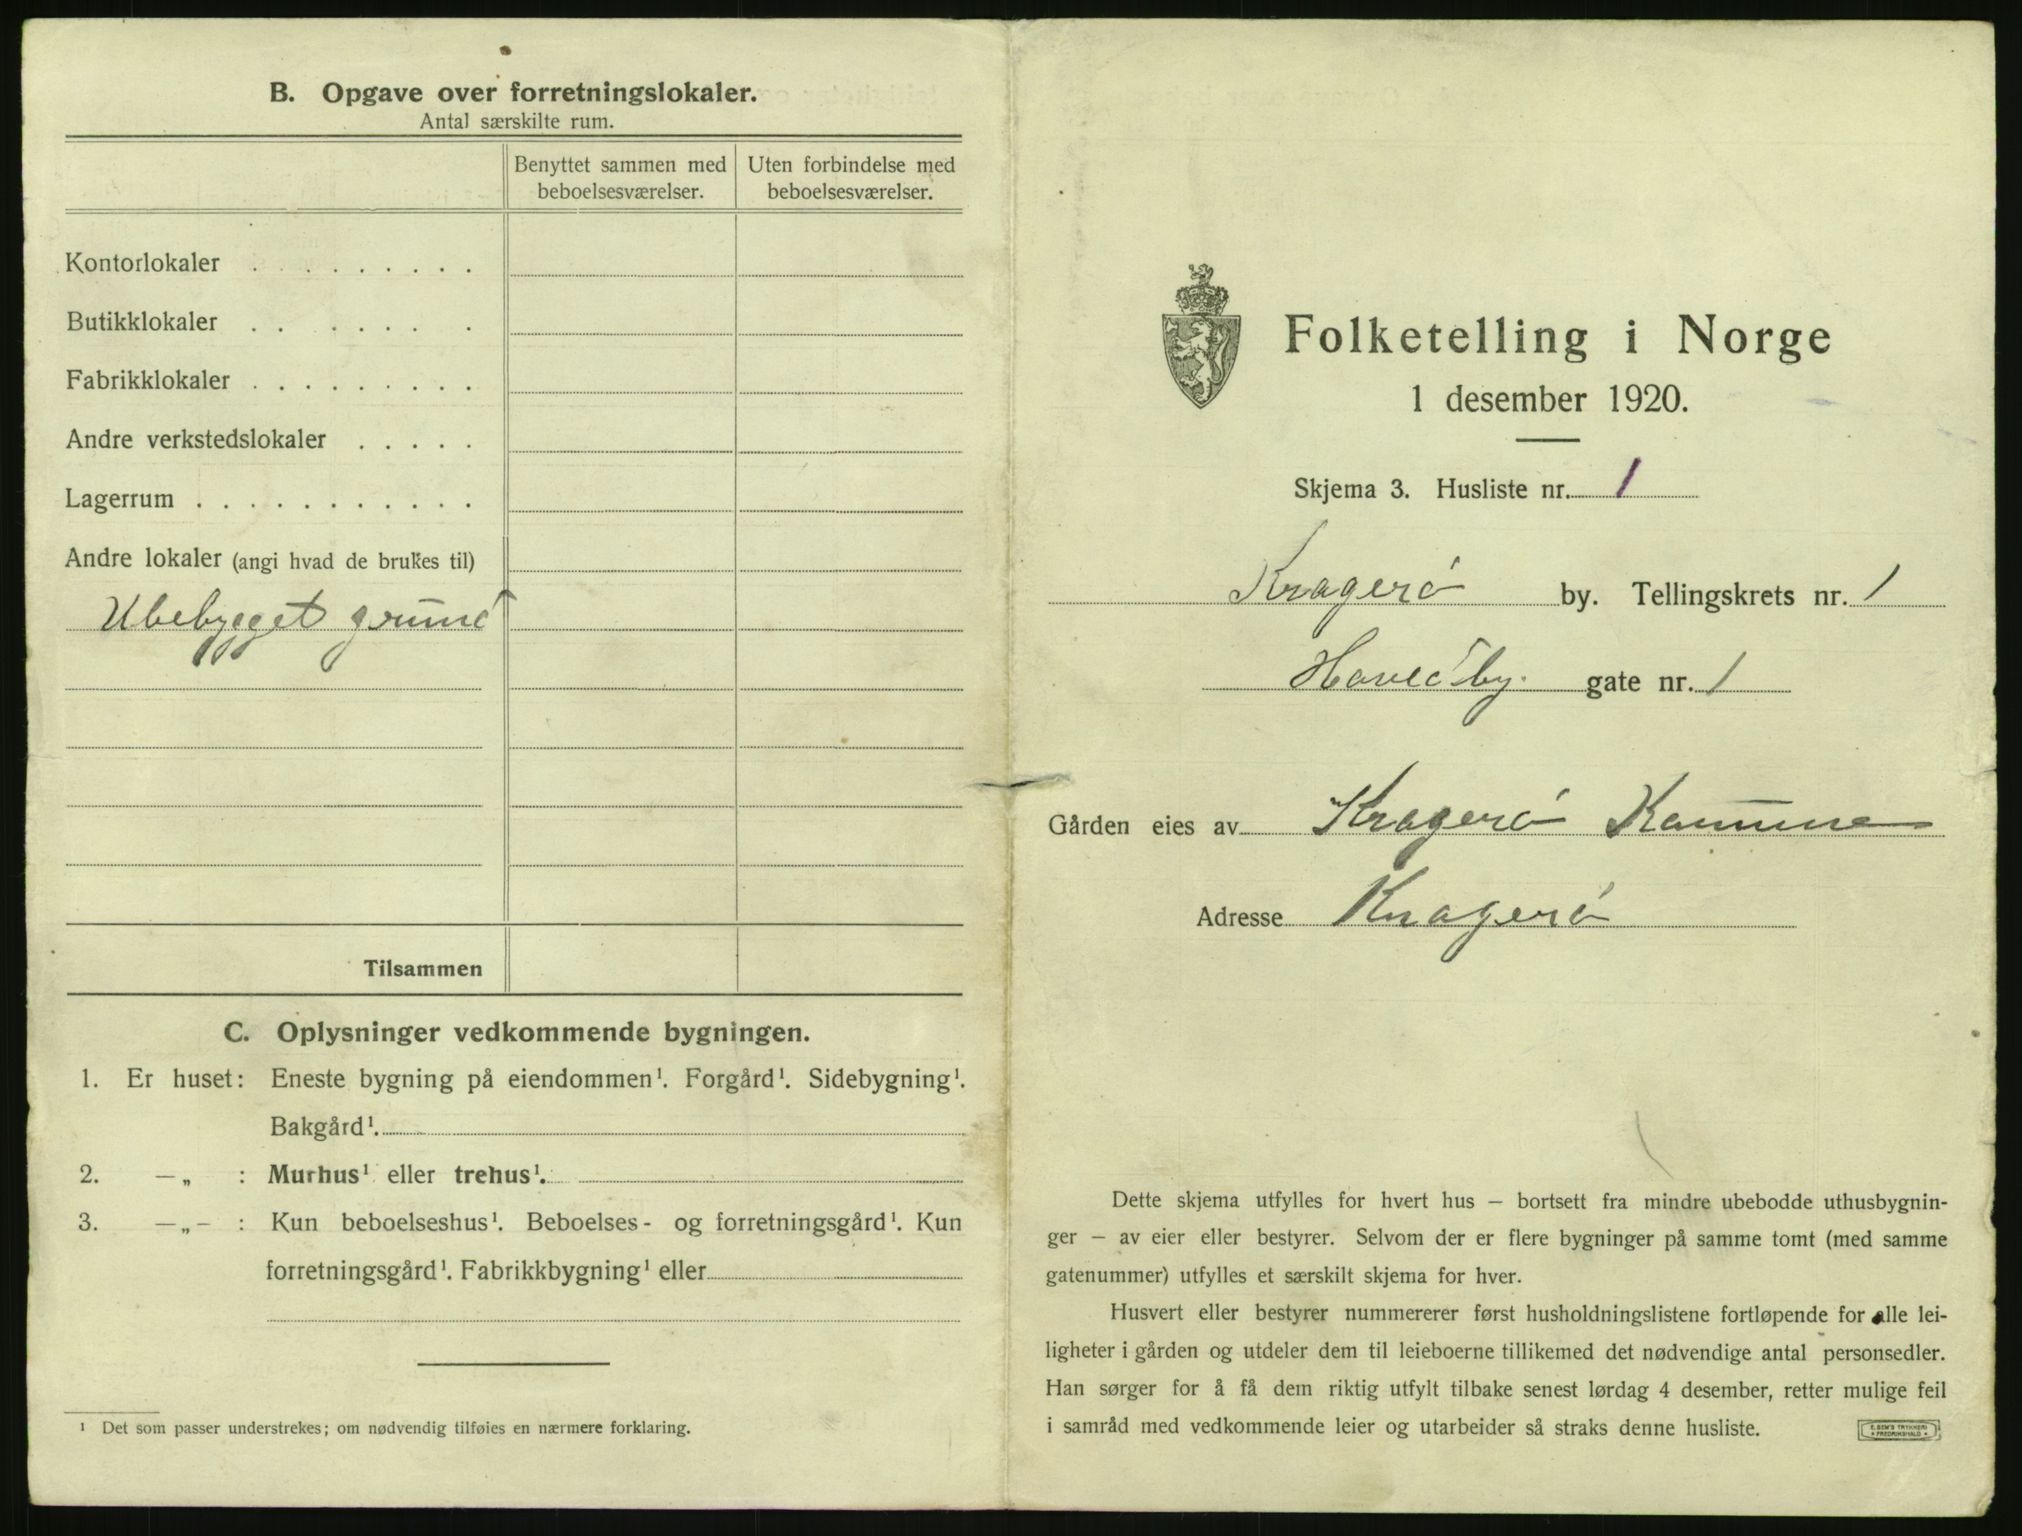 B. Opgave over forretningslokaler.
Antal særskilte rum.
Benyttet sammen med beboelsesværelser.
Uten forbindelse med beboelsesværelser.
Kontorlokaler . . . . . . . . .
Butikklokaler . . . . . . . .
Fabrikklokaler . . . . . . . . .
Andre verkstedslokaler . . . . .
Lagerrum . . . . . . . . . . .
Andre lokaler (angi hvad de brukes til)
Ubebygget grund
Tilsammen
C. Oplysninger vedkommende bygningen.
1. Er huset: Eneste bygning på eiendommen¹. Forgård¹. Sidebygning¹.
Bakgård¹.
2. —„ : Murhus¹ eller trehus¹.
3. —„— : Kun beboelseshus¹. Beboelses- og forretningsgård¹. Kun
forretningsgård¹. Fabrikkbygning¹ eller
¹ Det som passer understrekes; om nødvendig tilføies en nærmere forklaring.
Folketelling i Norge
1 desember 1920.
Skjema 3. Husliste nr. 1
Kragerö by. Tellingskrets nr. 1
gate nr. 1
Gården eies av Kragerö Kommune
Adresse Kragerö
Dette skjema utfylles for hvert hus — bortsett fra mindre ubebodde uthusbygnin-
ger — av eier eller bestyrer. Selvom der er flere bygninger på samme tomt (med samme
gatenummer) utfylles et særskilt skjema for hver.
Husvert eller bestyrer nummererer først husholdningslistene fortløpende for alle lei-
ligheter i gården og utdeler dem til leieboerne tillikemed det nødvendige antal personsedler.
Han sørger for å få dem riktig utfylt tilbake senest lørdag 4 desember, retter mulige feil
i samråd med vedkommende leier og utarbeider så straks denne husliste.
E. SEM'S TRYKKERI
FREDRIKSHALD